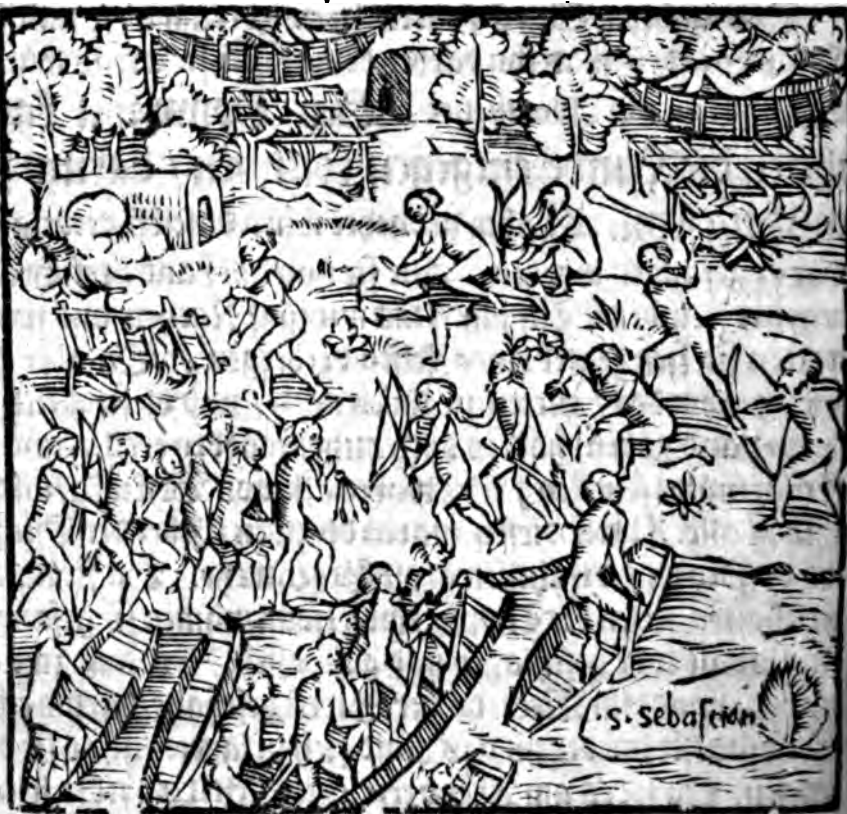 ·s·sebaſcion